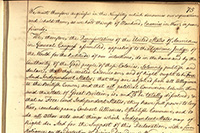 75
We must therefore acquiesce in the necessity which denounces our separation
and hold them, as we hold the rest of Mankind, Enemies in War, in peace
friends.
We therefore the Representatives of the United States of America
in General Congress assembled, appealing to the Supreme Judge of
the World for the rectitude of our intentions, do in the name and by the
Authority of the good people of these Colonies, Solemnly publish and
declare, that these united Colonies are, and of Right ought to be Free
and Independent States; that they are absolved from all Allegiance
to the British Crown and that all political
and the State of Great Britain is and ought to be totally
that as Free and Independent States, they have full power to levy
War, conclude peace, contract Alliances, establish Commerce, and
do all other acts and things which Independent States may of
Right do. And for the support of this Declaration, with a firm
reliance on the